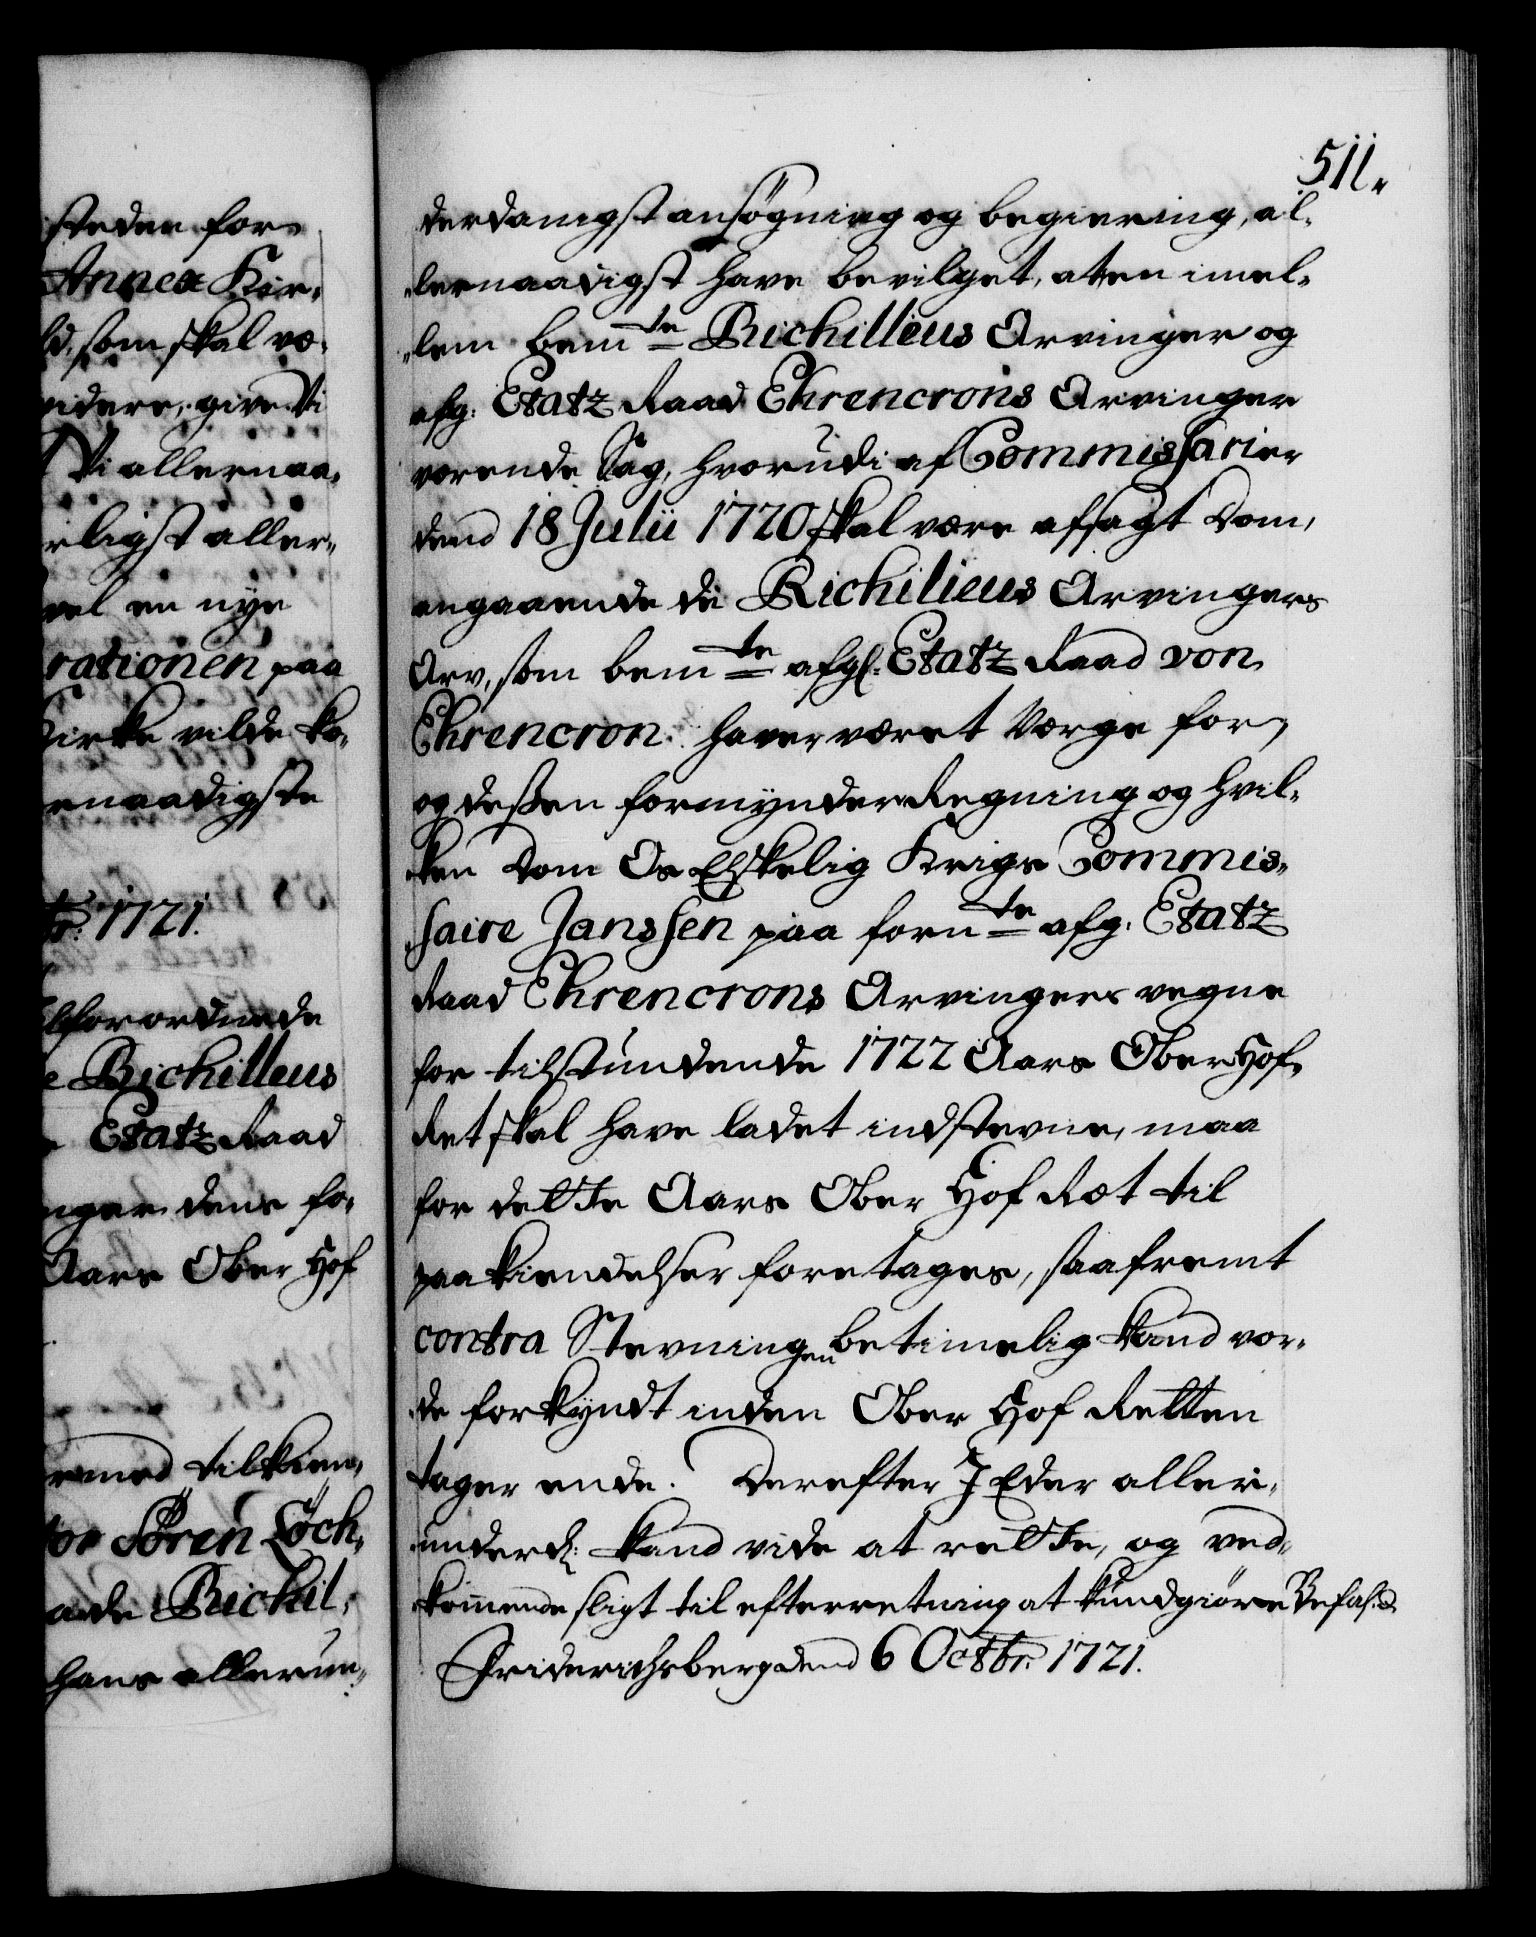 steder for-
Annex Kir-
ld, som skal væ-
videre, give Vi
Vi allernaa-
rligst aller-
vel en nye
rationen paa
Kirke vilde ko-
ernaadigste
tr: 1721.
lforordnede
e Richilleus
Etatz Raad
nger dens fo-
Aars Ober Hof
rmed tilkien-
tor Sören Löch-
ade Richil-
hans allerun-
511.
derdanigst ansøgning og begiering, al-
lernaadigst have bevilget, at en imel-
lem bemte Richilleus Arvinger og
afg: Etatz Raad Ehrencrons Arvinger
værende Sag, hvorudi af Commissarier
dend 18 Julii 1720 skal være afsagt Dom,
angaaende de Richilieus Arvingers
Arv, som bemte afgl: Etatz Raad von
Ehrencron haver været Værge for,
og deßen formynder Regning og hvil-
ken Dom Os Elskelig Krigs Commis-
saire Janssen paa fornte afg: Etatz
Raad Ehrencrons Arvingers vegne
for tilstundende 1722 Aars Ober Hof-
Ret skal have ladet indstevne, maa
for dette Aars Ober Hof Ræt til
paakiendelser foretages, saafremt
contra Stevningen betimelig kand vor-
de forkyndt inden Ober Hof Retten
tager ende. Derefter I Eder aller-
underd: kand vide at rette, og ved-
kommende sligt til efterretning at kundgiøre Befal: d.
Friderichsberg dend 6 Octbr: 1721.